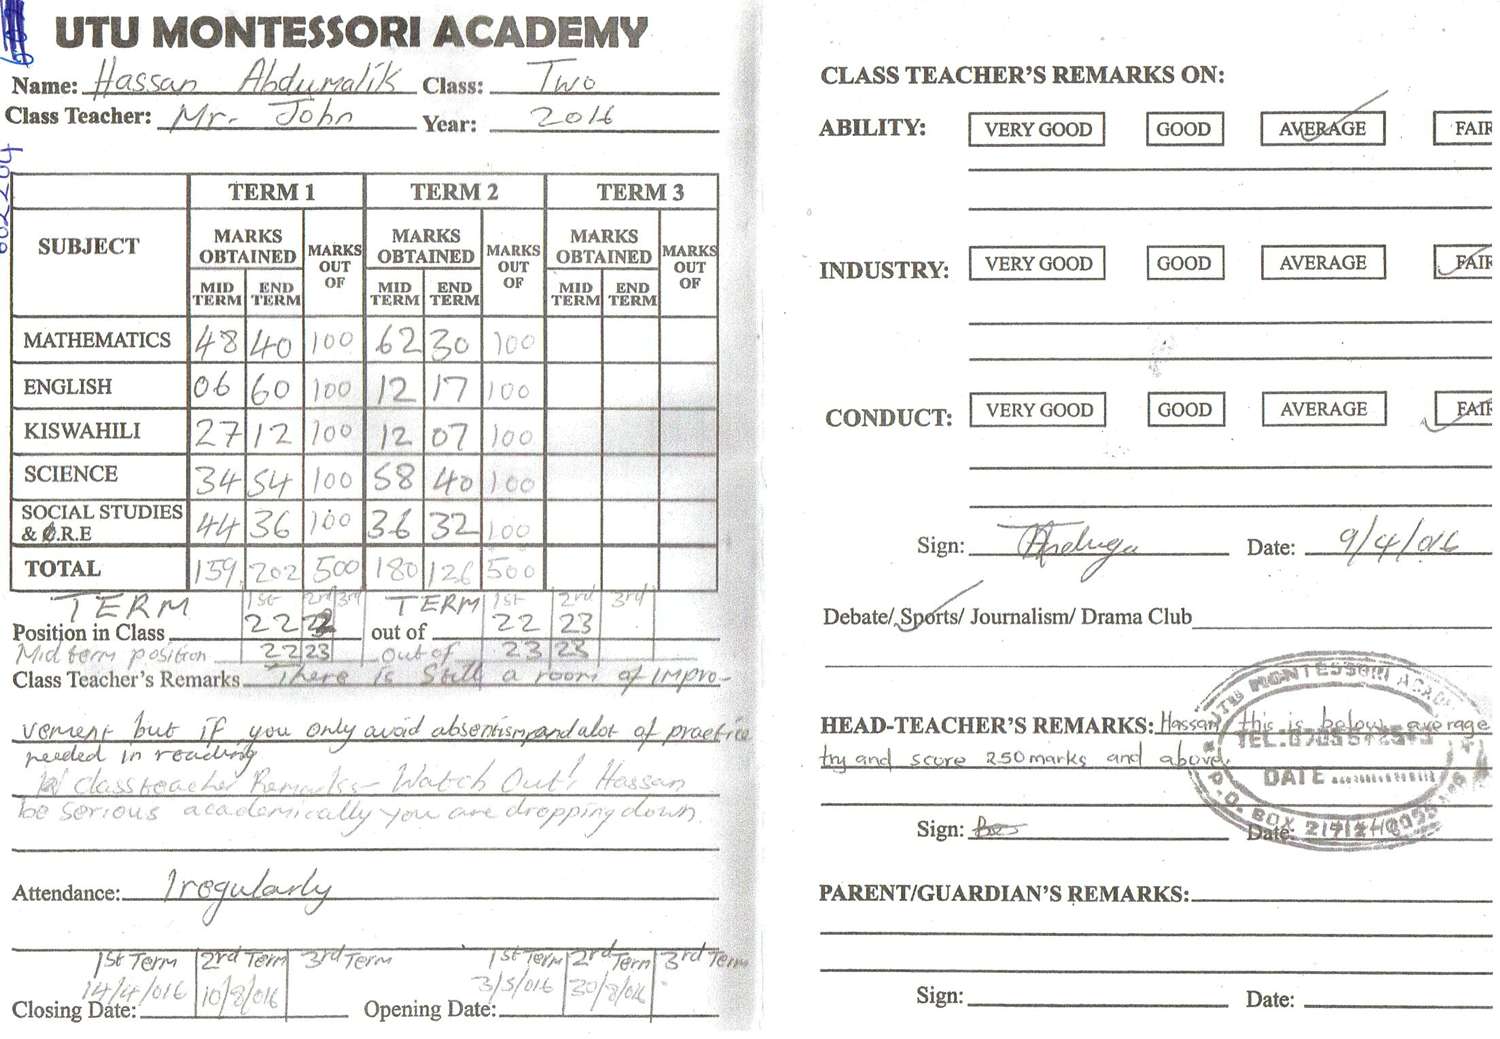 UTU MONTESSORI ACADEMY
Name: Hassan Abdumalik Class: Two
Class Teacher: Mr. John Year: 2016
602204
TERM 1 TERM 2 TERM 3
SUBJECT MARKS OBTAINED MARKS OUT OF MARKS OBTAINED MARKS OUT OF MARKS OBTAINED MARKS OUT OF
MID TERM END TERM MID TERM END TERM MID TERM END TERM
MATHEMATICS 48 40 100 62 30 100
ENGLISH 06 60 100 12 17 100
KISWAHILI 27 12 100 12 07 100
SCIENCE 34 54 100 58 40 100
SOCIAL STUDIES & C.R.E 44 36 100 36 32 100
TOTAL 159 202 500 180 126 500
TERM 1st 2nd 3rd TERM 1st 2nd 3rd
Position in Class 22 out of 22 23
Mid term position 22 23 Out of 23 23
Class Teacher's Remarks There is Still a room of impro-
vement but if you only avoid absentism and alot of practice
needed in reading
classteacher Remarks - Watch Out! Hassan
be serious academically you are dropping down
Attendance: Irogularly
1st Term 2nd Term 3rd Term 1st Term 2nd Term 3rd Term
14/4/016 10/8/016 3/5/016 30/8/016
Closing Date: Opening Date:
CLASS TEACHER'S REMARKS ON:
ABILITY: VERY GOOD GOOD AVERAGE FAIR
INDUSTRY: VERY GOOD GOOD AVERAGE FAIR
CONDUCT: VERY GOOD GOOD AVERAGE FAIR
Sign: Date: 9/4/016
Debate/ Sports/ Journalism/ Drama Club
HEAD-TEACHER'S REMARKS: Hassan this is below average
try and score 250 marks and above.
UTU MONTESSORI ACADEMY
DATE
P.O. BOX
Sign: Date:
PARENT/GUARDIAN'S REMARKS:
Sign: Date: